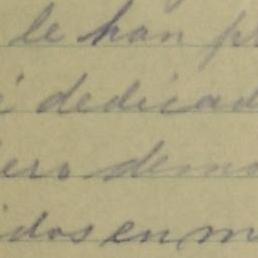 le han pr
dedicad
ero dem
idos en m